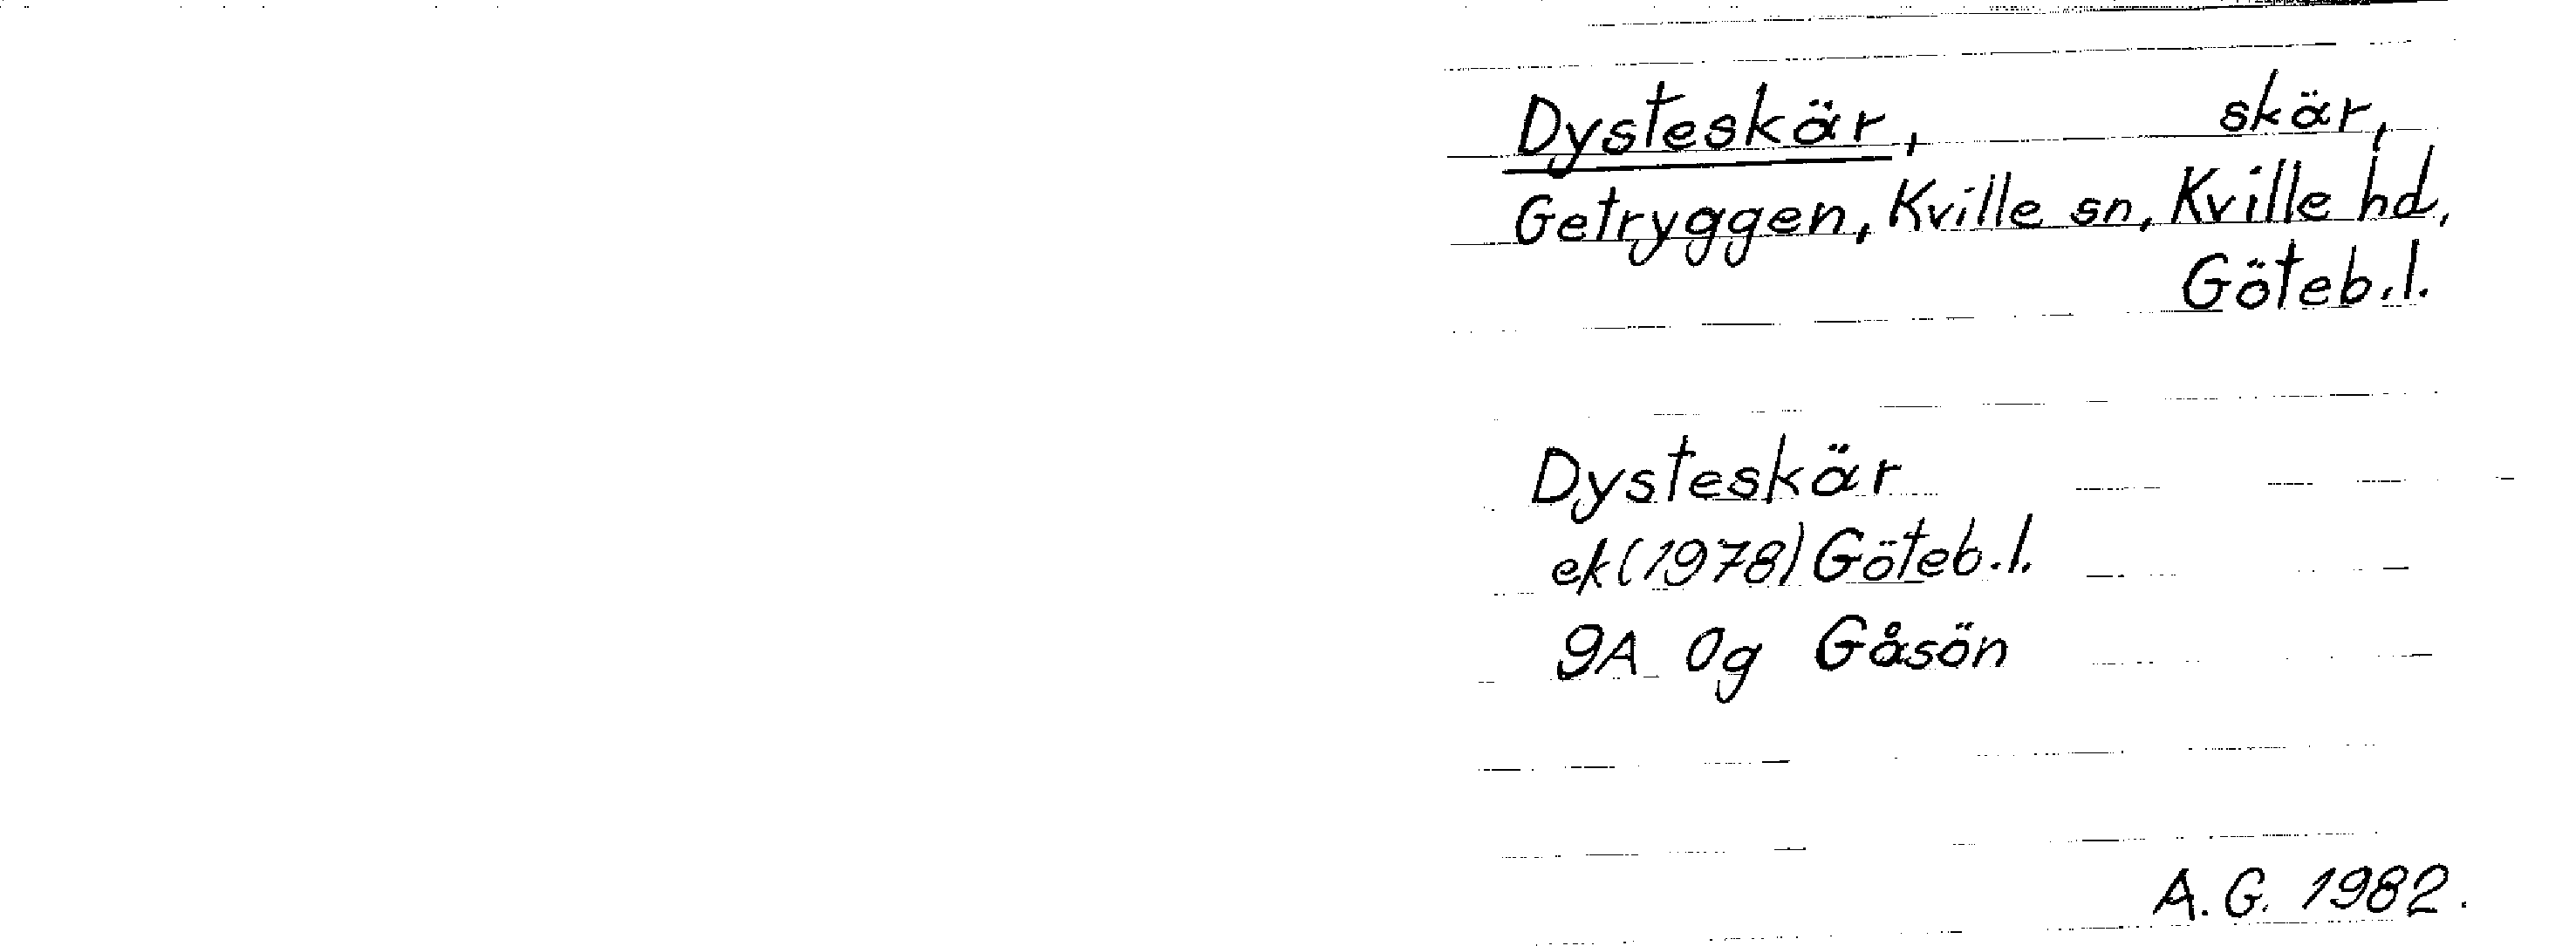 Dysteskär, skär,
Getryggen, Kville sn, Kville hd,
Göteb.l.
Dysteskär
ek(1978) Göteb.l.
9A 0g Gåsön
A.G. 1982.